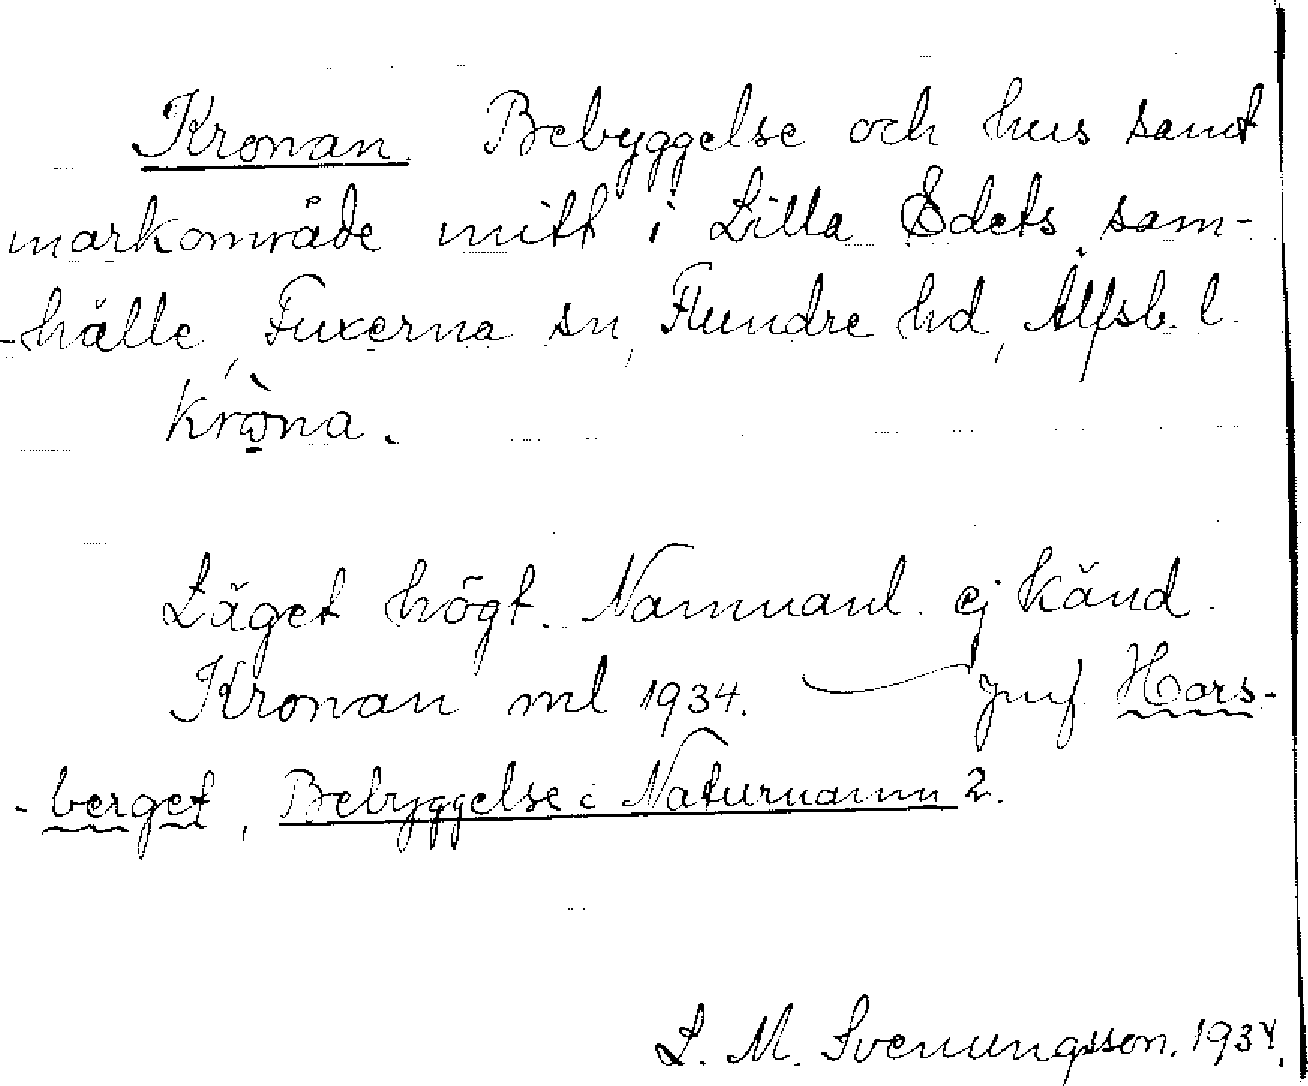 Kronan Bebyggelse och hus samt
markområde mitt i Lilla Edets sam-
-hälle, Fuxerna sn, Flundre hd, Älfsb. l.
Kròna.
Läget högt. Namnanl. ej känd.
Kronan ml 1934. Jmf Hors-
-berget, Bebyggelse: Naturnamn 2.
L. M. Svenungsson. 1934.